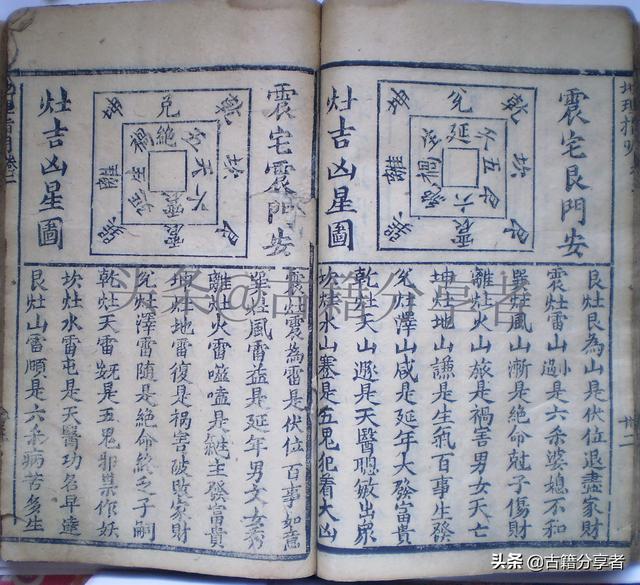 地理指
震宅艮門安
兌 乾 坎 艮 震 巽 離 坤
延 天 五 六 禍
灶吉凶星圖
艮灶艮為山是伏位退盡家財
震灶雷山小過是六杀婆媳不和
巽灶風山漸是絶命尅子傷財
離灶火山旅是禍害男女夭亡
坤灶地山謙是生氣百事生發
兌灶澤山咸是延年大發富貴
乾灶天山遯是天醫聰敏出家
坎灶水山蹇是五鬼犯着大凶
卅二
震宅震門安
兌 乾 坎 艮 震 巽 離 坤
絶 五 天 六 震 延 生 禍
灶吉凶星圖
震灶震為雷是伏位百事如意
巽灶風雷益是延年男文女秀
離灶火雷噬嗑是主發富貴
坤灶地雷復是禍害破敗家財
兌灶澤雷随是絶命終乏子嗣
乾灶天雷是五鬼邪祟作妖
坎灶水雷屯是天醫功名早達
艮灶山雷頤是六杀病苦多生
头条@古籍分享者
头条 @古籍分享者